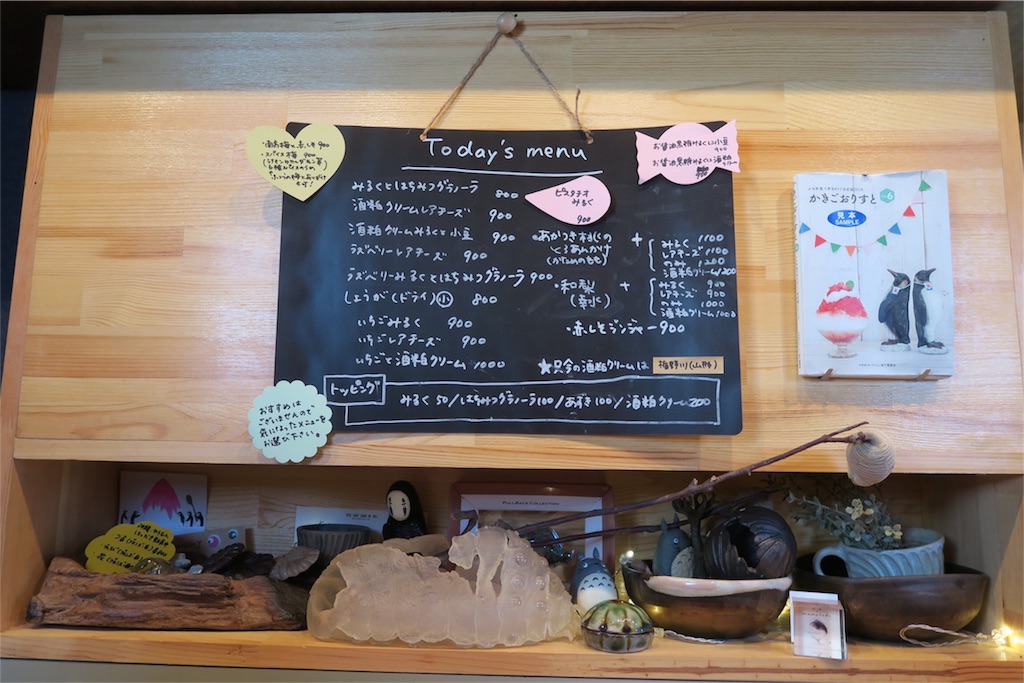 Today's menu
みるくとはちみつグラノーラ 800
酒粕クリームレアチーズ 900
酒粕クリームみるくと小豆 900
ラズベリーレアチーズ 900
ラズベリーみるくとはちみつグラノーラ 900
しょうが(ドライ)小 800
いちごみるく 900
いちごレアチーズ 900
いちごと酒粕クリーム 1000
ピスタチオ
みるく
900
あかつき桃の
+
みるく 1100
レアチーズ 1100
のみ 1200
酒粕クリーム1200
・和梨
(幸水)
+
みるく 900
レアチーズ 900
のみ 1000
酒粕クリーム1000
・赤しそジンジャー900
★只今の酒粕クリームは
トッピング
みるく50/はちみつグラノーラ100/あずき100/酒粕クリーム200
・スパイス梅 900
お醤油黒糖みるくに小豆
900
お醤油黒糖みるくに酒粕
おすすめは
ございませんので
気になったメニューを
お選び下さい。
かきごおりすと
vol.6
見本
SAMPLE